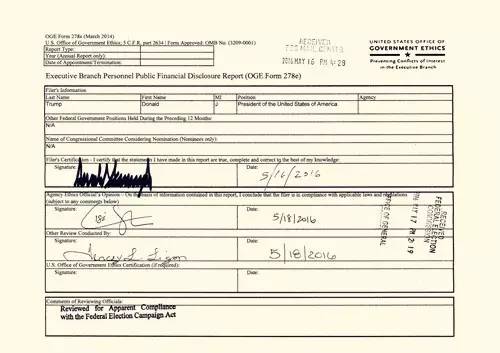 OGE Form 278e (March 2014)
U.S. Office of Government Ethics; 5 C.F.R. part 2634 | Form Approved: OMB No. (3209-0001)
Report Type:
Year (Annual Report only):
Date of Appointment/Termination:
RECEIVED
FEC MAIL CENTER
2016 MAY 16 PM 4:29
UNITED STATES OFFICE OF
GOVERNMENT ETHICS
Preventing Conflicts of Interest
in the Executive Branch
Executive Branch Personnel Public Financial Disclosure Report (OGE Form 278e)
Filer's Information
Last Name First Name MI Position Agency
Trump Donald J President of the United States of America
Other Federal Government Positions Held During the Preceding 12 Months:
N/A
Name of Congressional Committee Considering Nomination (Nominees only):
N/A
Filer's Certification - I certify that the statements I have made in this report are true, complete and correct to the best of my knowledge:
Signature: Date:
5/16/2016
Agency Ethics Official's Opinion - On the basis of information contained in this report, I conclude that the filer is in compliance with applicable laws and regulations
(subject to any comments below)
Signature: Date:
5/18/2016
Other Review Conducted By:
Signature: Date:
5/18/2016
U.S. Office of Government Ethics Certification (if required):
Signature: Date:
RECEIVED
FEDERAL ELECTION
COMMISSION
17 PM 2:19
OFFICE OF GENERAL
Comments of Reviewing Officials:
Reviewed for Apparent Compliance
with the Federal Election Campaign Act